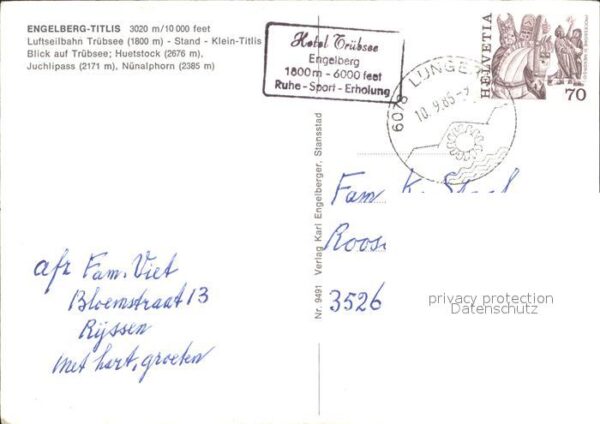 ENGELBERG-TITLIS 3020 m/10 000 feet
Luftseilbahn Trübsee (1800 m) - Stand - Klein-Titlis
Blick auf Trübsee; Huetstock (2676 m),
Juchlipass (2171 m), Nünalphorn (2385 m)
Hotel Trübsee
Engelberg
1800 m - 6000 feet
Ruhe - Sport - Erholung
6078 LUNGE
10.9.85-
HELVETIA
70
Nr. 9491 Verlag Karl Engelberger, Stansstad
Fam K.
Roos
3526
privacy protection
Datenschutz
afz Fam. Viet
Bloemstraat 13
Rijssen
met hart. groeten